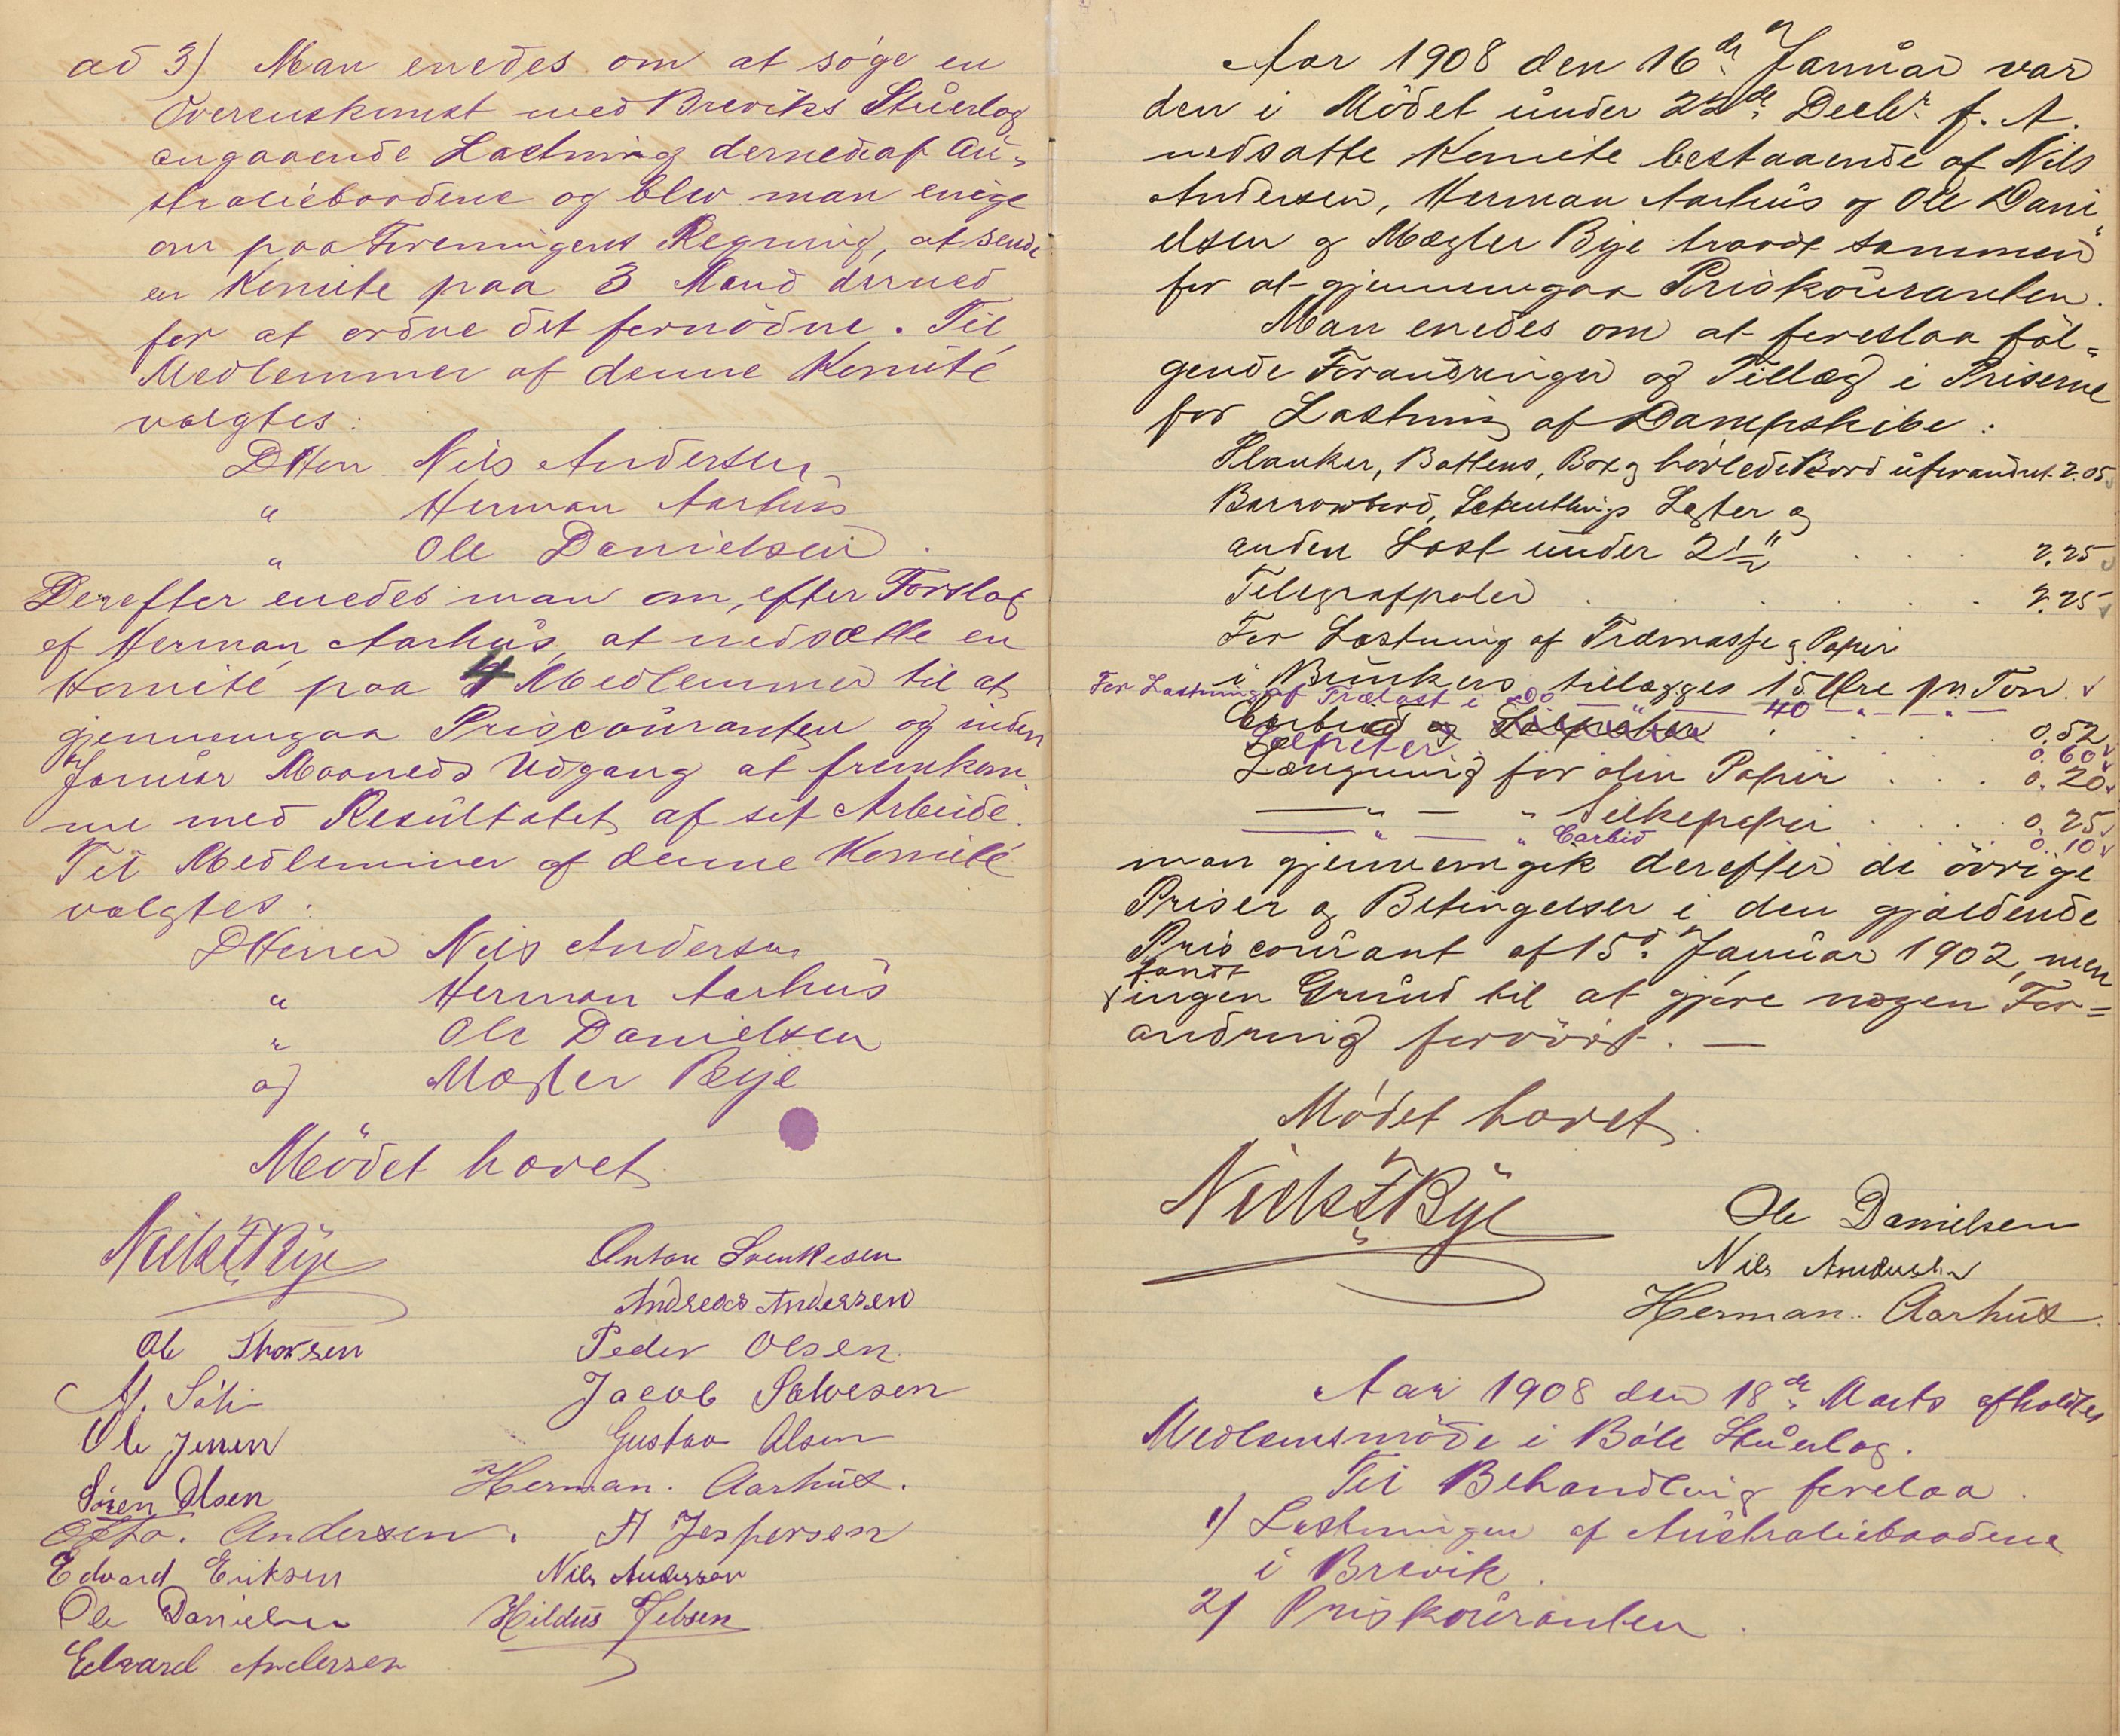 ad 3) Man enedes om at søge en
Overenskomst med Breviks Stuerlag
angaaende Lastning dernede af Au-
straliebaadene og blev man enige
om paa Foreningens Regning, at sende
en Komite paa 3 Mand derned
for at ordne det fornødne. Til
Medlemmer af denne Komité
valgtes:
DHerr Nils Andersen
" Herman Aarhus
" Ole Danielsen.
Derefter enedes man om, efter Forslag
af Herman Aarhus, at nedsætte en
Komité paa 4 Medlemmer til at
gjennemgaa Priscouranten og inden
Januar Maaneds Udgang at fremkom-
me med Resultatet af sit Arbeide.
Til Medlemmer af denne Komité
valgtes:
DHerrer Nils Andersen
" Herman Aarhus
" Ole Danielsen
og Mægler Bye
Mödet hævet
Niels Bye
Anton Svenkesen
Andreas Anderssen
Ole Thorsen
Peder Olsen
Jacob Salvesen
Ole Jensen
Gustav Olsen
Sören Olsen
Herman. Aarhus.
Otto. Andersen.
A Jespersen
Edvard Eriksen
Nils Andersen
Ole Danielsen
Hildus Jebsen
Edvard Andersen
Aar 1908 den 16de Januar var
den i Mödet under 22de Decbr. f. A.
nedsatte Komite bestaaende af Nils
Andersen, Herman Aarhus og Ole Dani-
elsen og Mægler Bye traadt sammen
for at gjennemgaa Priskouranten.
Man enedes om at foreslaa føl-
gende Forandringer og Tillæg i Priserne
for Lastning af Dampskibe:
Planker, Battens, Box og høvlede Bord uforandret 2.05
Barrowbord, Lægter og
anden Last under 2 1/2" . . . 2.25
Telegrafpoler . . . . . . 2.25
For Lastning af Træmasse og Papir
i Bunkers tillægges 15 Øre pr. Ton.
For Lastning af Trælast i do — " — 40 — " — " —
Carbid og Salpeter . . . 0.52
Salpeter 0.60
Længning for alm Papir . . . 0.20
— " — " Silkepapir . . . 0.25
— " — " Carbid . . . 0.10
man gjennemgik derefter de övrige
Priser og Betingelser i den gjældende
Priscourant af 15d. Januar 1902, men
fandt
ingen Grund til at gjøre nogen For-
andring forøvrigt. —
Mødet hævet.
Niels Bye
Ole Danielsen
Nils Andersen
Herman. Aarhus.
Aar 1908 den 18de Marts afholdtes
Medlemsmøde i Bøle Stuerlag.
Til Behandling forelaa.
1) Lastningen af Australiebaadene
i Brevik.
2) Priskouranten.